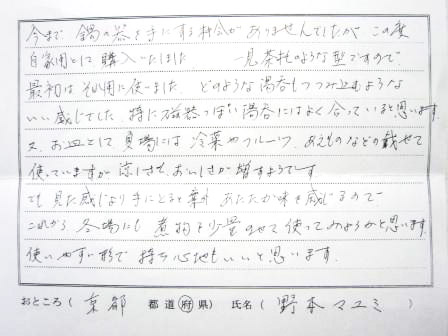 今まで 錫の器を手にする機会がありませんでしたが この度
自家用として購入いたしました 一見茶托のような型ですので
最初は その用に使いました どのような湯呑もつつみ込むような
いい感じでした。特に磁器っぽい湯呑にはよく合っていると思います
又、お皿として 夏場には 冷菓やフルーツ、あえものなどの載せて
使っていますが 涼しさも、おいしさが増すようです
でも 見た感じより 手にとると あたたか味を感じるので
これから 冬場にも 煮物を少量のせて 使ってみようかと思います。
使いやすい形で 持ち心地もいいと思います。
おところ ( 京都 都 道 府 県 ) 氏名 ( 野本 マユミ )